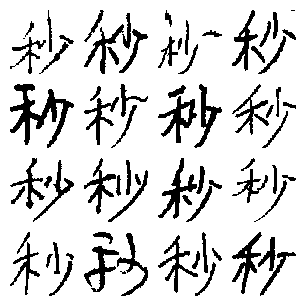 秒秒秒秒
秒秒秒秒
秒秒秒秒
秒秒秒秒